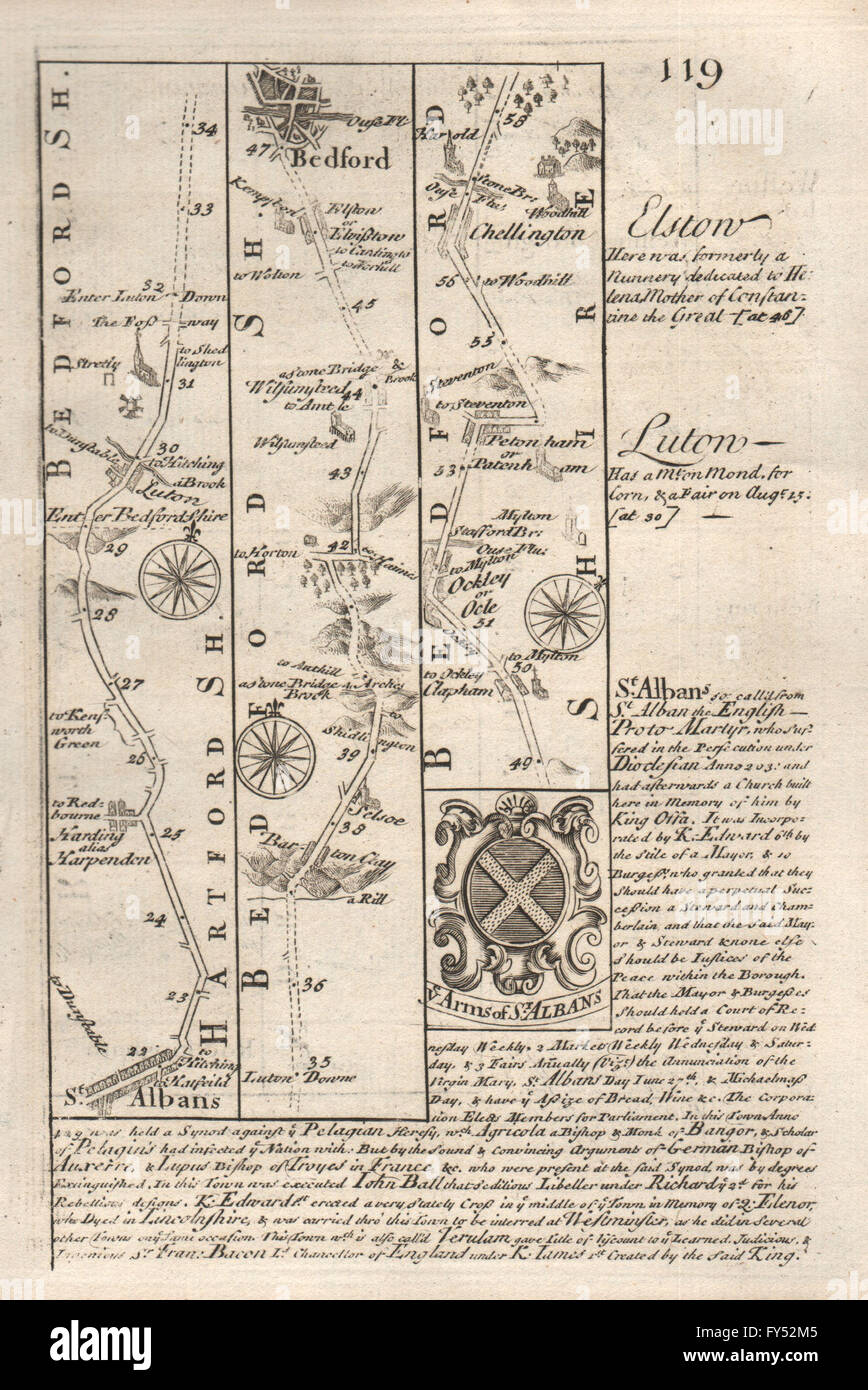 119
BEDFORDSH.
34
33
32
Enter Luton Down
The Foß way
Stretly
to Shed
lington
31
to Dunstable
30
to Hitching
a Brook
Luton
Enter Bedfordshire
29
28
27
to Kens
worth
Green
26
to Red-
bourne
Harding
alias
Harpenden
25
24
23
to Dunstable
22
to
Hitching
to Hatfeild
St.
Albans
HARTFORD SH.
BEDFORD SH.
Ouse Fl:
47
Bedford
Kempston
Elston
or
Elvistow
to Cardington
to Wolton
45
a Stone Bridge &
Brook
Wilshumsteed
44
to Amt le
Wilshumsteed
43
42
to Horton
to Haines
to Anthill
a Stone Bridge 4 Arches
Brook
to
Shidlington
39
Selsoe
38
Bar-
ton Clay
a Rill
36
35
Luton Downe
BEDFORDSHIRE
58
Harold
Stone Br:
Ouse
Flu:
Woodhill
Chellington
56
to Woodhill
55
Steventon
to Steventon
Petonham
or
Patenham
53
Mylton
Stafford Br:
Ouse Flu:
to Mylton
Ockley
or
Ocle
51
Ockley
to Mylton
to Ockley
50
Clapham
49
Elstow
Here was formerly a
Nunnery dedicated to He-
lena Mother of Constan-
tine the Great [at 46]
Luton
Has a Mt. on Mond. for
Corn, & a Fair on Augt. 15.
[at 30]
St. Albans so call'd from
St. Alban the English
Proto Martyr, who suf-
fered in the Persecution under
Dioclesian Anno 203: and
had afterwards a Church built
here in Memory of him by
King Offa. It was Incorpo-
rated by K. Edward 6th by
the stile of a Mayor, & 10
Burgess: who granted that they
Should have a perpetual Suc-
cession a Steward and Cham-
berlain, and that the said May-
or & Steward & none else
should be Justices of the
Peace within the Borough.
That the Mayor & Burgeßes
Should hold a Court of Re-
cord before ye Steward on Wed
ye Arms of St. ALBANS
nesday Weekly. 2 Markets Weekly Wednesday & Satur-
day, & 3 Fairs Anually (Vizt.) the Annunciation of the
Virgin Mary, St. Albans Day June 17th. & Michaelmaß
Day, & have ye Aßize of Bread, Wine &c. The Corpora-
tion Elects Members for Parliament. In this Town Anno
429 was held a Synod against ye Pelagian Heresy, wch. Agricola a Bishop & Monk of Bangor, & Scholar
of Pelagius had infected ye Nation with. But by the Sound & Convincing Arguments of German Bishop of
Auxerre, & Lupus Bishop of Troyes in France &c. who were present at the said Synod, was by degrees
Extinguished. In this Town was executed John Ball that Seditious Libeller under Richard ye 2d. for his
Rebellious designs. K. Edward 1st. erected a very Stately Croß in ye middle of ye Town in Memory of Q: Elenor,
who Dyed in Lincolnshire, & was carried thro this Town to be interred at Westminster, as he did in Several
other Towns on ye Same occasion. This Town wch. is also call'd Verulam gave Title of Viscount to ye Learned, Judicious, &
Ingenious Sr. Fran: Bacon Ld. Chancellor of England under K. James 1st. Created by the said King.
alamy
Image ID: FY52M5
www.alamy.com